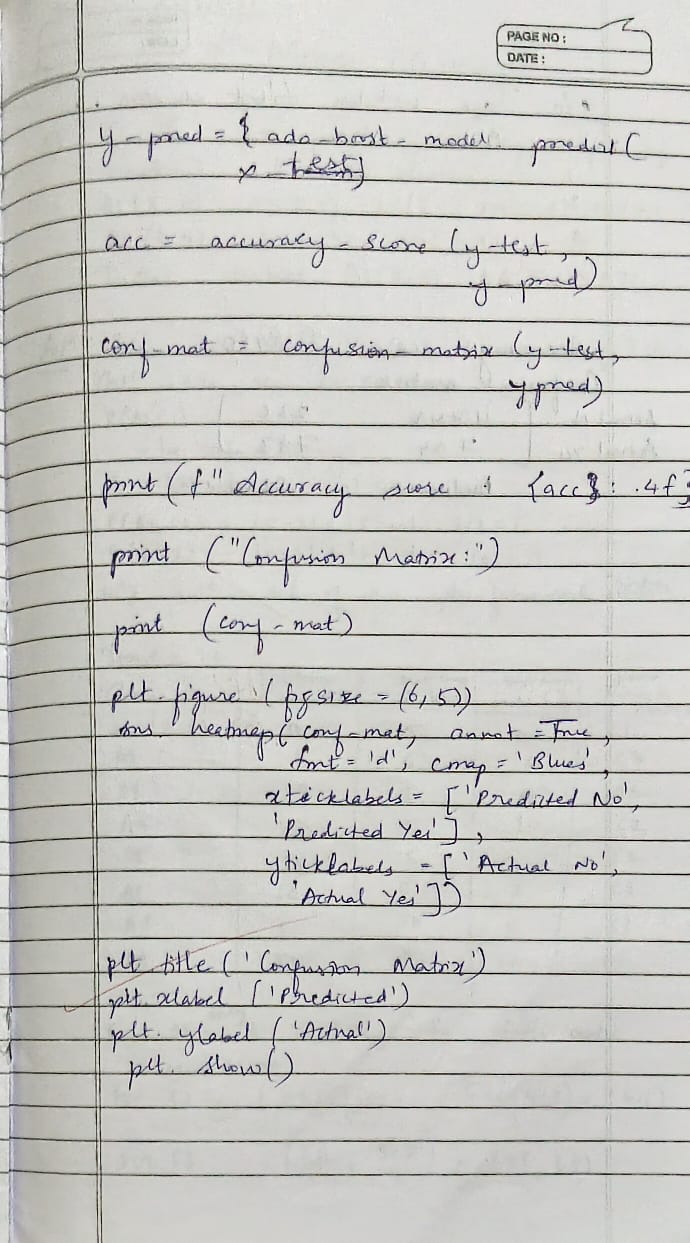 PAGE NO:
DATE:
y-pred = { ada-boost-model. predict (
x-test)
acc = accuracy-score (y-test,
y-pred)
conf-mat = confusion-matrix (y-test,
y pred)
print (f" Accuracy score : {acc}: .4f}
print ("Confusion Matrix:")
print (conf-mat)
plt. figure (figsize = (6, 5))
sns. heatmap( conf-mat, annot = True,
fmt = 'd', cmap = 'Blues',
xticklabels = ['Predicted No',
'Predicted Yes'],
yticklabels = ['Actual No',
'Actual Yes'])
plt. title ('Confusion Matrix')
plt. xlabel ('Predicted')
plt. ylabel ('Actual')
plt. show()